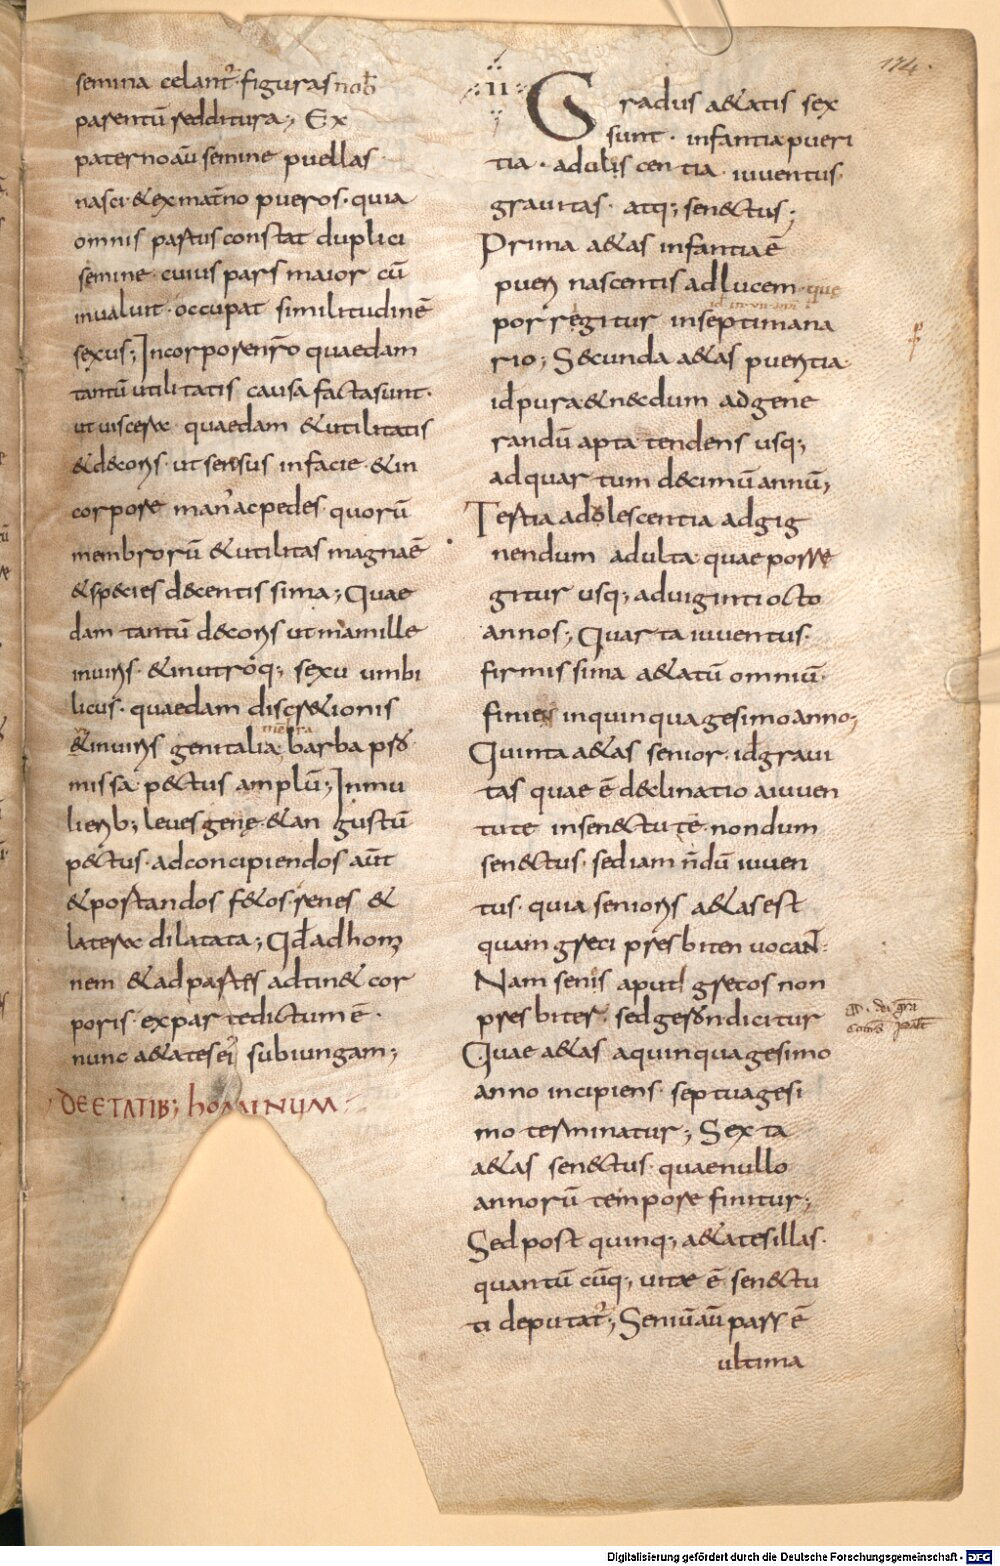 174.
semina celant᷑ figuras nob̄
parentū redditura; Ex
paterno aū semine puellas
nasci & ex mat̄no pueros · quia
omnis partus constat duplici
semine · cuius pars maior cū
inualuit · occupat similitudinē
sexus; In corpore nr̄o quaedam
tantū utilitatis causa facta sunt ·
ut uiscerae · quaedam & utilitatis
& decoris · ut sensus in facie · & in
corpore man᾽ ac pedes · quorū
membrorū & utilitas magna ē
& species decentissima; Quae
dam tantū decoris ut mamille
in uiris · & in utroq; sexu umbi
licus · quaedam discr&ionis
membra
& in uiris genitalia barba p̱
missa · pectus amplū; In mu
lierib; leues genę & an gustū
pectus · ad concipiendos aūt
& portandos f&os · renes &
laterae dilatata; Qđ ad homi
nem & ad partes adtin& cor
poris · ex parte dictum ē ·
nunc a&ates ei᾽ subiungam;
DE ETATIB; hOMINUM
·II· Gradus a&atis sex
sunt · infantia pueri
tia · adulis cen tia · iuuentus ·
grauitas · atq; senectus;
Prima a&as infantia ē
pueri nascentis ad lucem · quę
id in vii anni
porrēgitur in septimana
rio; Secunda a&as pueritia
id̄ pura & necdum ad gene
randū apta tendens usq;
ad quartum decimū annū;
Tertia adolescentia ad gig
nendum adulta quae porre
gitur usq; ad uiginti octo
annos; Quarta iuuentus ·
firmissima a&atū omniū ·
finies in quinquagesimo anno;
Quinta a&as senior · id̄ graui
tas quae ē declinatio a iuuen
tute in senectute · nondum
senectus · sed iam n̄dū iuuen
tus · quia senioris a&as est
quam greci presbiteri uocan̄t ·
Nam senis aput grecos non
presbiter · sed geron dicitur
Quae a&as a quinquagesimo
anno incipiens · septuagesi
mo terminatur; Sexta
a&as senectus · quae nullo
annorū tempore finitur;
Sed post quinq; a&ates illas ·
quantū cūq; uitae ē · senectu
ti deputat᷑; Seniū aū pars ē
ultima
Digitalisierung gefördert durch die Deutsche Forschungsgemeinschaft - DFG